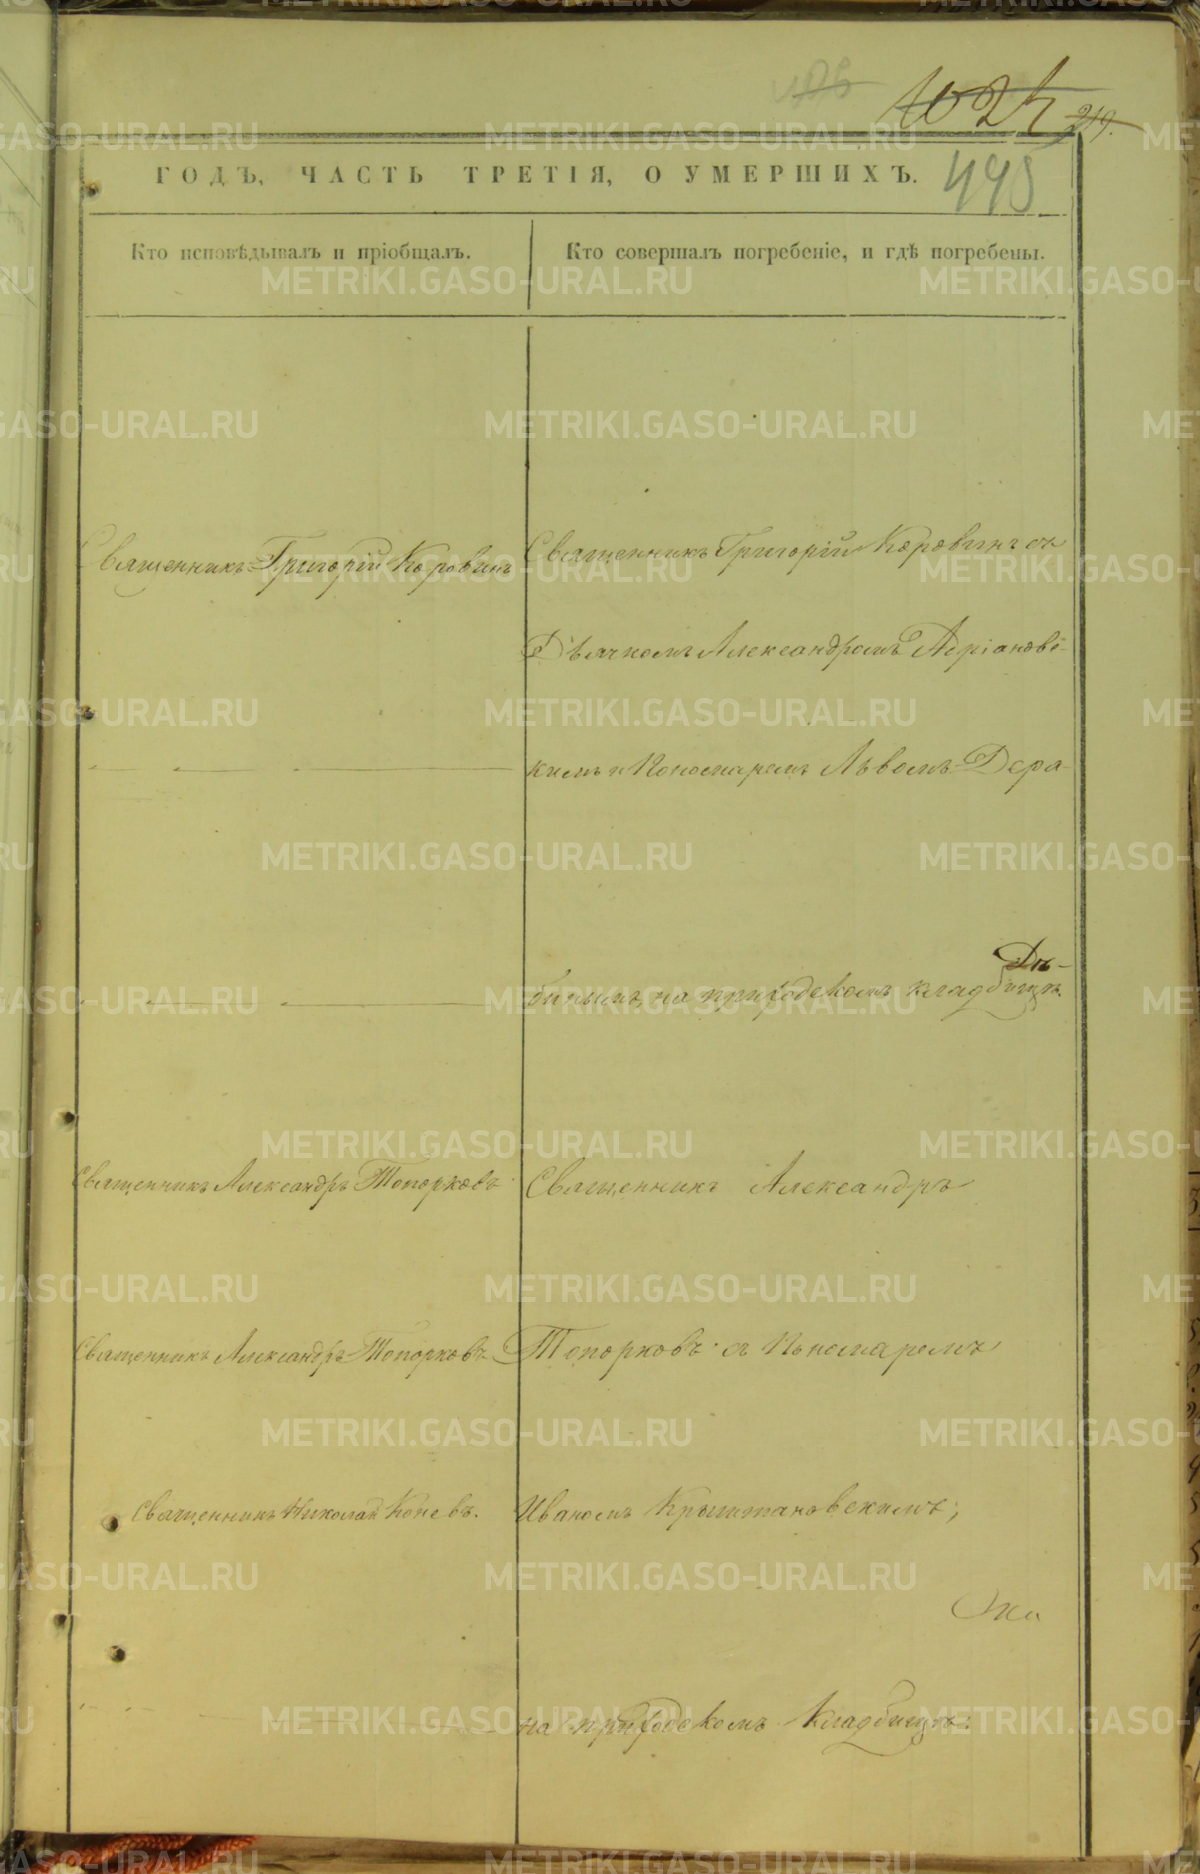 1024
219.
ГОДЪ, ЧАСТЬ ТРЕТІЯ, О УМЕРШИХЪ.
448
Кто исповѣдывалъ и пріобщалъ.
Кто совершалъ погребеніе, и гдѣ погребены.
Священникъ Григорій Коровинъ
Священникъ Григорій Коровинъ съ
Дьячкомъ Александромъ Адріановс-
кимъ и Пономаремъ Львомъ Дера-
бинымъ, на приходскомъ кладбищѣ.
Священникъ Александръ Топорковъ
Священникъ Александръ
Священникъ Александръ Топорковъ
Топорковъ съ Пономаремъ
Священникъ Николай Коневъ.
Иваномъ Крыштановскимъ;
на приходскомъ кладбищѣ.
METRIKI.GASO-URAL.RU